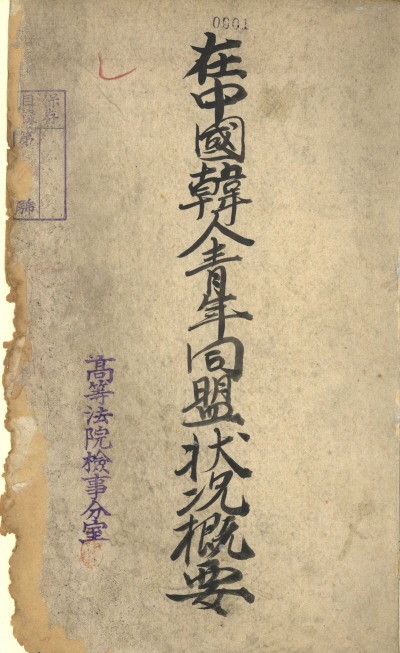 0001
在中國韓人青年同盟狀況概要
保存
目錄第
號
高等法院檢事分室